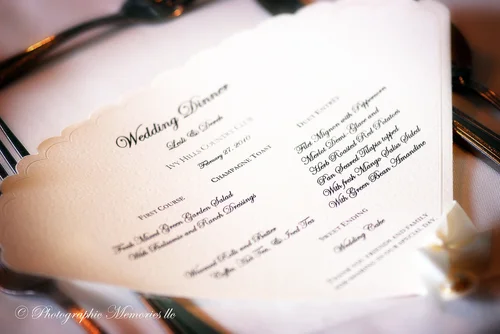 Wedding Dinner
Leslie & Derek
Ivy Hills Country Club
February 27, 2010
Champagne Toast
First Course
Fresh Mixed Green Garden Salad
With Balsamic and Ranch Dressings
Warmed Rolls and Butter
Coffee, Hot Tea, and Iced Tea
Duet Entrée
Filet Mignon with Peppercorn
Merlot Demi Glace and
Herb Roasted Red Potatoes
Pan Seared Tilapia topped
With fresh Mango Salsa Sided
With Green Bean Amandine
Sweet Ending
Wedding Cake
Thank you friends and family
for sharing in our special day
© Photographic Memories llc